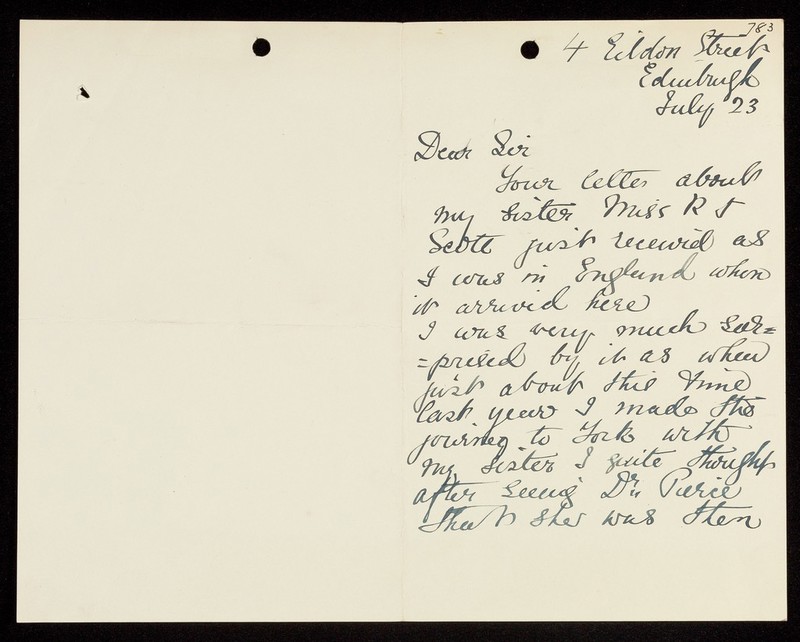 783
4 Eildon Street
Edinburgh
July 23
Dear Sir
Your letter about
my sister Miss R J
Scott just received as
I was in England when
it arrived here
I was very much sur=
=prised by it as when
just about this time
last year I made the
journey to York with
my sister I quite thought
after seeing Dr. Pierce
that she was then